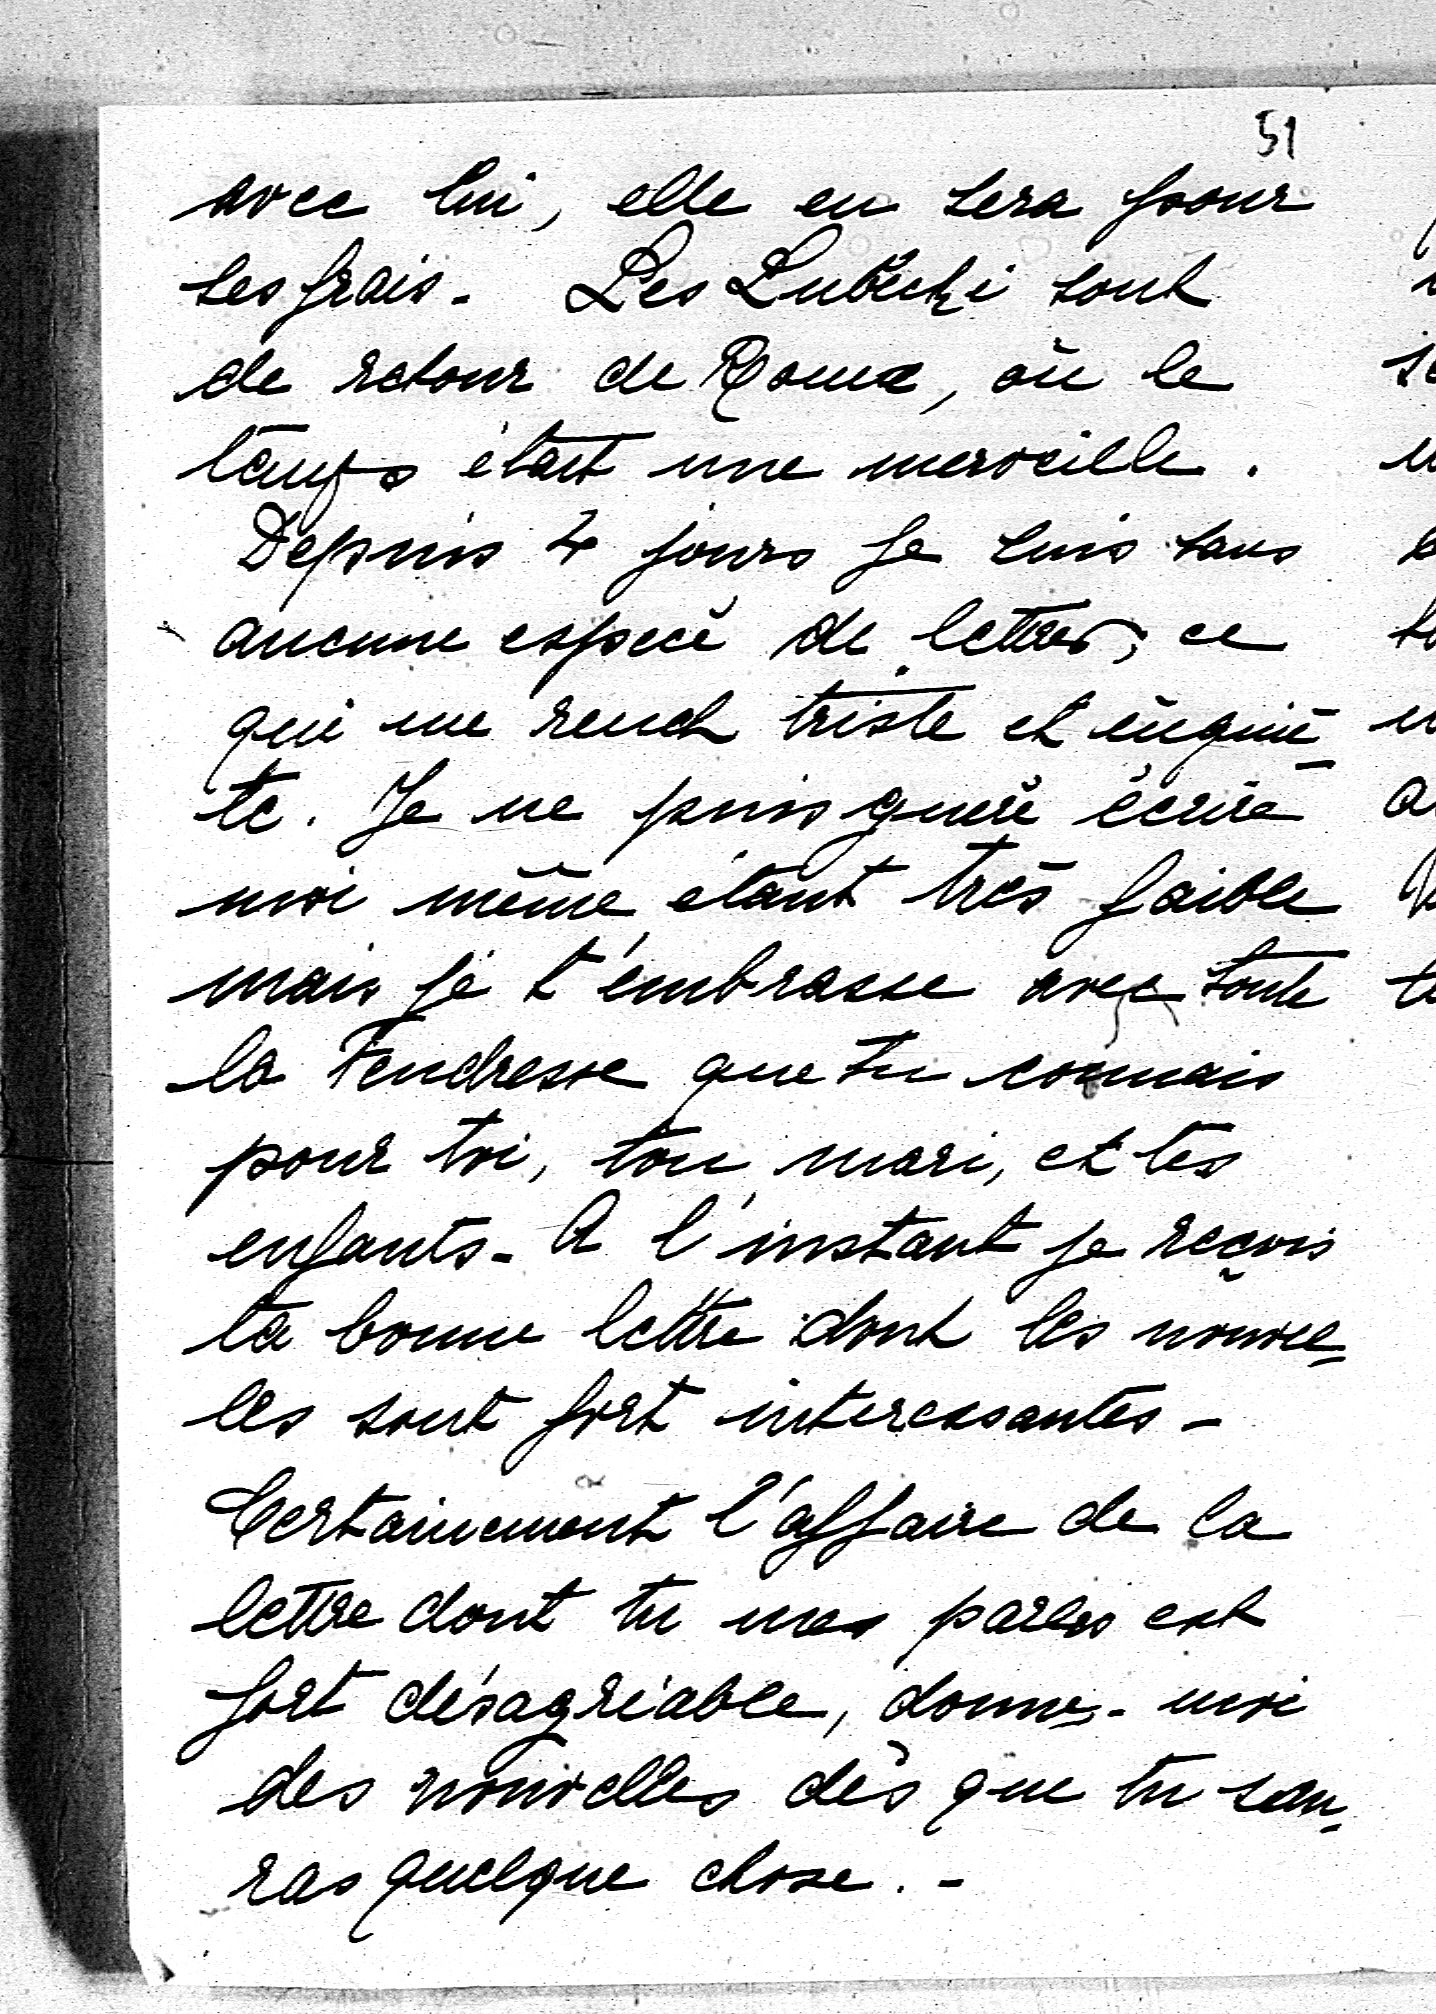 51
avec lui, elle en sera pour
ses frais. Les Lubecki sont
de retour de Rome, où le
temps était une merveille.
Depuis 4 jours je suis sans
aucune espèce de lettres, ce
qui me rend triste et inquiè-
te. Je ne puis guère écrire
moi même, étant très faible
mais je t'embrasse avec toute
la tendresse que tu connais
pour toi, ton mari, et tes
enfants. A l'instant je reçois
ta bonne lettre dont les nouvel-
les sont fort interessantes -
Certainement l'affaire de la
lettre dont tu me parles est
fort désagréable, donnes-moi
des nouvelles dès que tu sau-
ras quelque chose. -